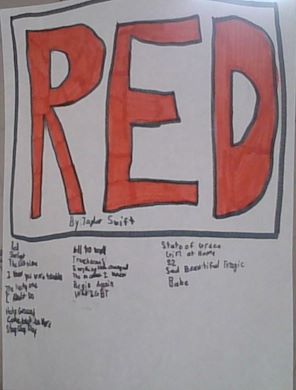 RED
By: Taylor Swift
Red
The last time
I knew you were trouble
The lucky one
I
Holy Ground
Come back
Stay Stay Stay
All to well
Treacherous
Everything has changed
The moment I knew
Begin Again
State of Grace
Girl at Home
22
Sad Beautiful Tragic
Babe